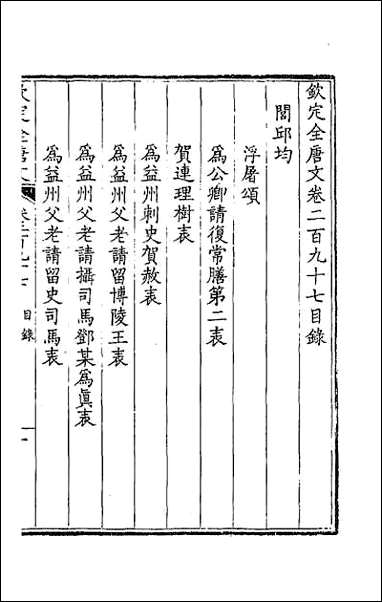 欽定全唐文卷二百九十七目錄
閭邱均
浮屠頌
為公卿請復常膳第二表
賀連理樹表
為益州刺史賀赦表
為益州父老請留博陵王表
為益州父老請攝司馬鄧某為眞表
為益州父老請留史司馬表
欽定全唐文 卷二百九十七 目錄 一